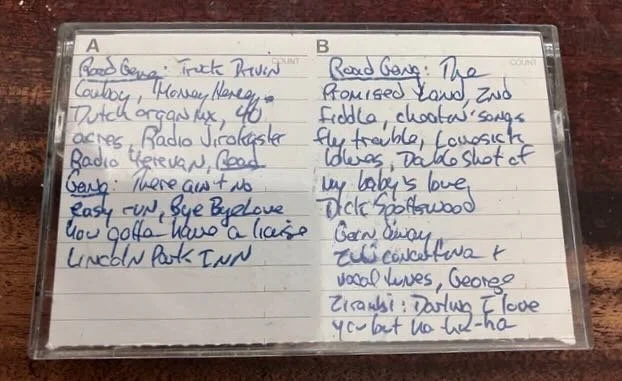 A
COUNT
Road Gang: Truck Drivin
Cowboy, Money Honey,
Dutch organ mx, 40
acres, Radio
Radio Yerevan, Road
Gang: There ain't no
easy run, Bye Bye Love
You gotta have a
Lincoln Park Inn
B
COUNT
Road Gang: The
Promised Land, 2nd
Fiddle, chootin' songs
fly trouble, Lovesick
blues, Double shot of
my baby's love,
Dick Spottswood
Zulu concertina +
vocal tunes, George
Darling I love
you but ha-ha-ha